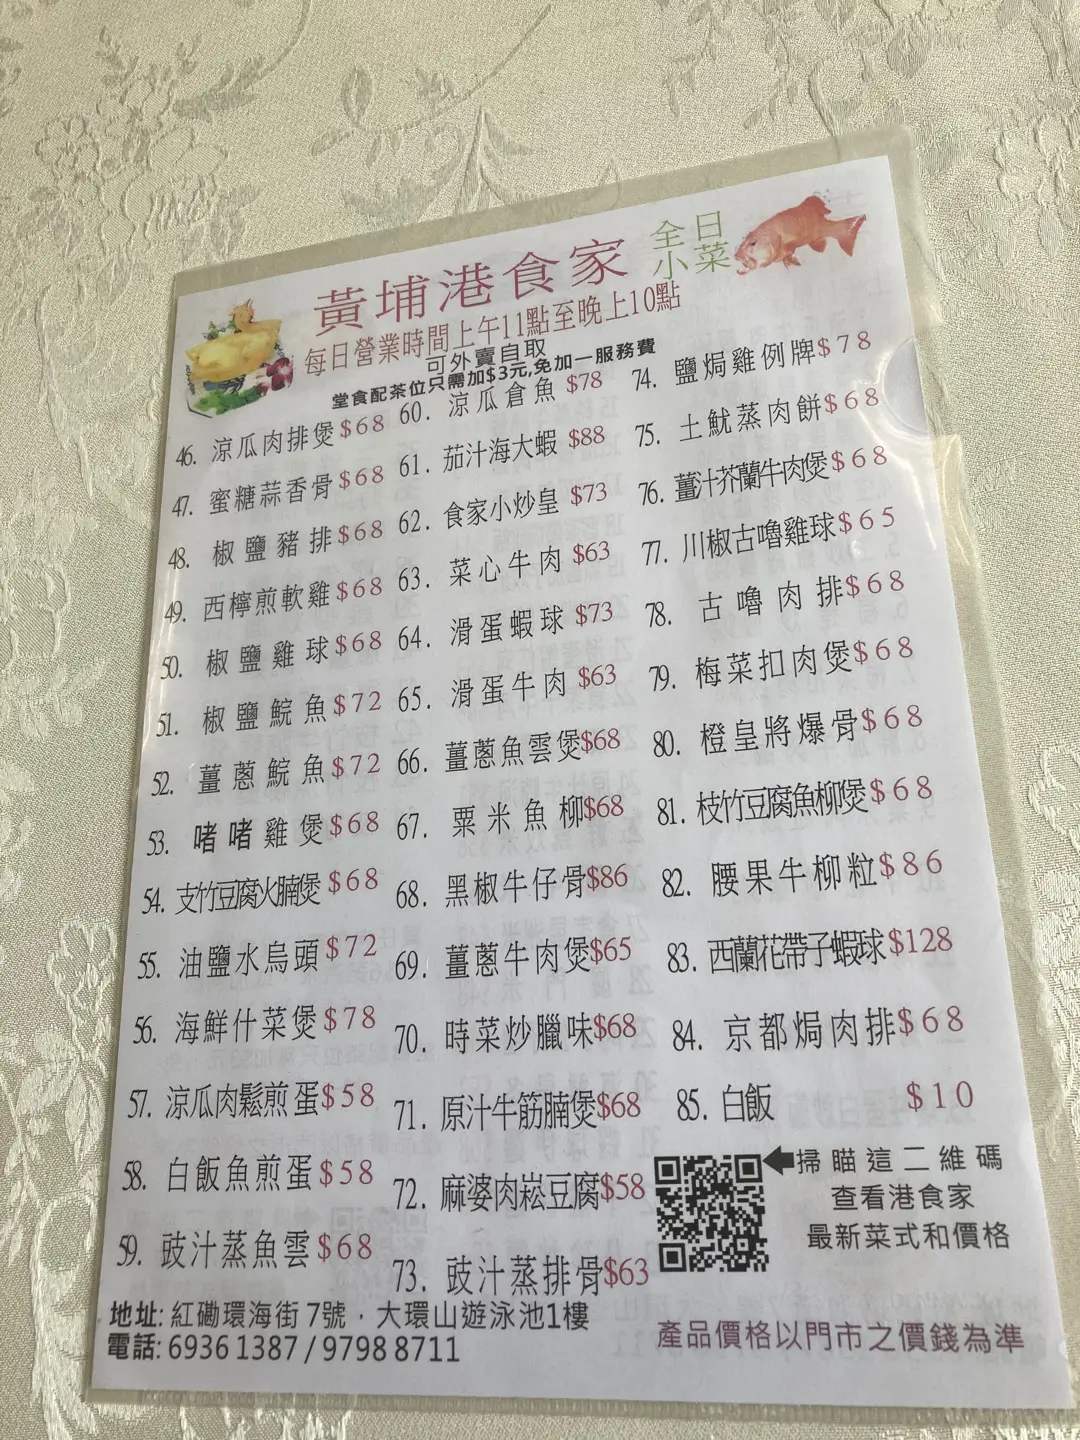 黃埔港食家
全日
小菜
每日營業時間上午11點至晚上10點
可外賣自取
堂食配茶位只需加$3元,免加一服務費
46. 涼瓜肉排煲$68
47. 蜜糖蒜香骨$68
48. 椒鹽豬排$68
49. 西檸煎軟雞$68
50. 椒鹽雞球$68
51. 椒鹽鯇魚$72
52. 薑蔥鯇魚$72
53. 啫啫雞煲$68
54. 支竹豆腐火腩煲$68
55. 油鹽水烏頭$72
56. 海鮮什菜煲$78
57. 涼瓜肉鬆煎蛋$58
58. 白飯魚煎蛋$58
59. 豉汁蒸魚雲$68
60. 涼瓜倉魚$78
61. 茄汁海大蝦$88
62. 食家小炒皇$73
63. 菜心牛肉$63
64. 滑蛋蝦球$73
65. 滑蛋牛肉$63
66. 薑蔥魚雲煲$68
67. 粟米魚柳$68
68. 黑椒牛仔骨$86
69. 薑蔥牛肉煲$65
70. 時菜炒臘味$68
71. 原汁牛筋腩煲$68
72. 麻婆肉崧豆腐$58
73. 豉汁蒸排骨$63
74. 鹽焗雞例牌$78
75. 土魷蒸肉餅$68
76. 薑汁芥蘭牛肉煲$68
77. 川椒古嚕雞球$65
78. 古嚕肉排$68
79. 梅菜扣肉煲$68
80. 橙皇將爆骨$68
81. 枝竹豆腐魚柳煲$68
82. 腰果牛柳粒$86
83. 西蘭花帶子蝦球$128
84. 京都焗肉排$68
85. 白飯 $10
掃瞄這二維碼
查看港食家
最新菜式和價格
地址: 紅磡環海街 7號,大環山遊泳池1樓
電話: 6936 1387 / 9798 8711
產品價格以門市之價錢為準